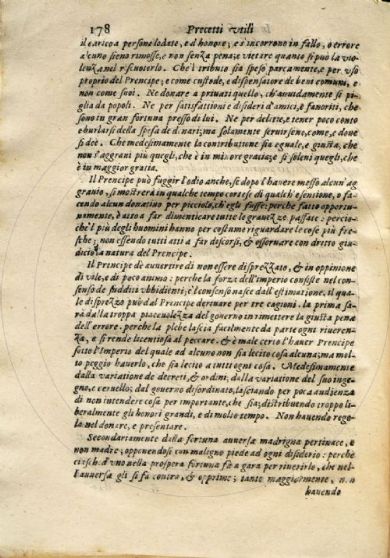 178 Precetti vtili
il carico a persone lodate, e d'honore; e s'incorrono in fallo, o errore
alcuno sieno rimosse, e non senza pena; e vietare quanto si può la vio-
lenza nel riscuoterlo. Che'l tributo sia speso parcamente, e per vso
proprio del Prencipe; e come custode, e dispensatore de beni comuni, e
non come suoi. Ne donare a priuati quello, ch'auidamente si pi-
glia da popoli. Ne per satisfattioni e desideri d'amici, e fauoriti, che
sono in gran fortuna presso di lui. Ne per delitie, e tener poco conto
e burlarsi della spesa de d'nari; ma solamente seruirsene, come, e doue
si dee. Che medesimamente la contributione sia eguale, e giusta, che
non s'aggraui piu quegli, che è in minor gratia; e si solleui quegli, che
è in maggior gratia.
Il Prencipe può fuggir l'odio anche, se dopo l'hauere messo alcun'ag
grauio, si mostrerà in qualche tempo cortese di qualch'essentione, o fa-
cendo alcun donatiuo per piccolo, ch'egli fusse: perche fatto opportu-
namente, è atto a far dimenticare tutte le grauezze passate: percio-
che'l più degli huomini hanno per costume riguardare le cose più fre-
sche; non essendo tutti atti a far discorsi, & osseruare con dritto giu-
dicio la natura del Prencipe.
Il Prencipe dè auuertire di non essere disprezzato, & in oppinione
di vile, e di poco animo: perche la forza dell'imperio consiste nel con-
senso de sudditi vbbidienti; e'l consenso nasce dall'estimatione. il qua-
le disprezzo può dal Prencipe deriuare per tre cagioni. la prima sa-
rà dalla troppa piaceuolezza del gouerno in rimettere la giusta pena
dell'errore. perche la plebe lascia facilmente da parte ogni riueren-
za, e si rende licentiosa al peccare. & è male certo l'hauer Prencipe
sotto l'Imperio del quale ad alcuno non sia lecito cosa alcuna; ma mol-
to peggio hauerlo, che sia lecito a tutti ogni cosa. Medesimamente
dalla variatione de decreti, & ordini; dalla variatione del suo ingeg-
no, e ceruello; dal gouerno disordinato, lasciando per poca audienza
di non intendere cose per importante, che sia; distribuendo troppo li-
beralmente gli honori grandi, e di molto tempo. Non hauendo rego-
la nel donare, e presentare.
Secondariamente dalla fortuna auuersa madrigna pertinace, e
non madre; opponendosi con maligno piede ad ogni disiderio: perche
ciascheduno nella prospera fortuna fà a gara per riuerirlo, che nel-
l'auuersa gli si fà contro, & opprime; tanto maggiormente, non
hauendo